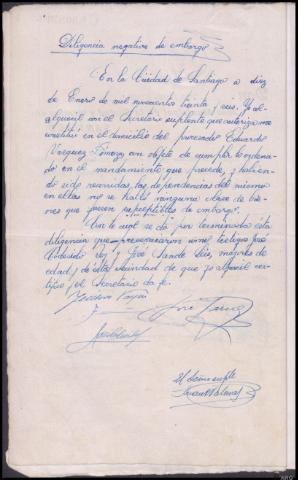 Diligencia negativa de embargo
En la Ciudad de Santiago a diez
de Enero de mil novecientos treinta y seis. Yo al-
guacil con el Secretario suplente que autoriza me
constituí en el domicilio del procesado Eduardo
Vazquez Gimara con objeto de cumplir lo ordena-
do en el mandamiento que precede, y habien-
do sido recorridas las dependencias del mismo
en ellas no se halló ninguna clase de bie-
nes que fuesen susceptibles de embargo.
Con lo cual se da por terminada esta
diligencia que presenciaron como testigos José
Rey y José Sande Leis, mayores de
edad y de esta vecindad de que yo alguacil cer-
tifico y el Secretario da fe.
José
El Secrio suple